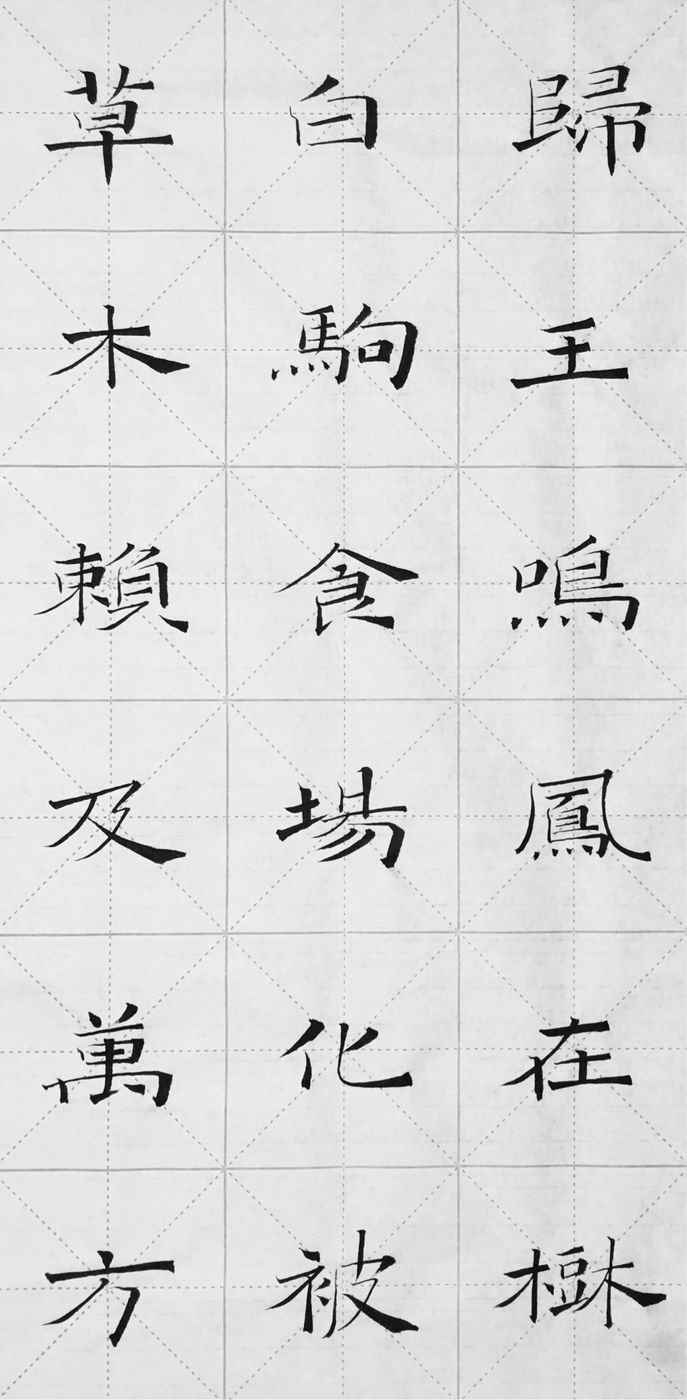 歸王鳴鳳在樹
白駒食場化被
草木賴及萬方